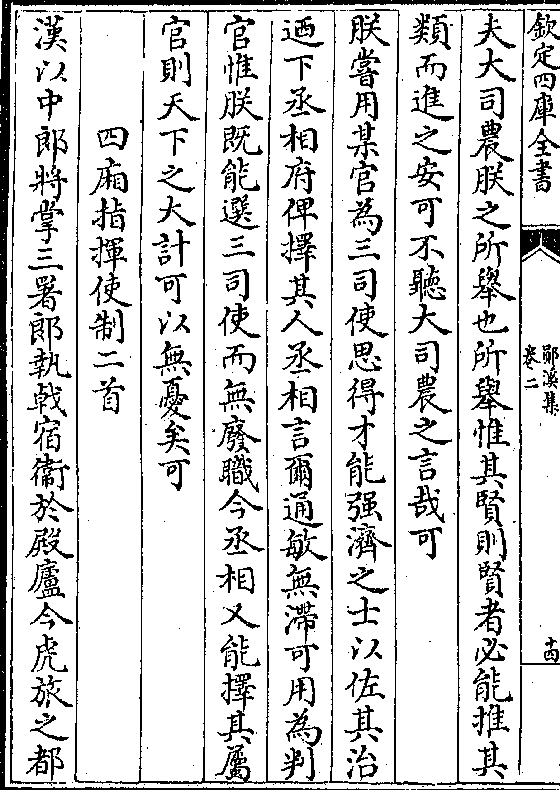 欽定四庫全書
鄖溪集
卷二
十四
夫大司農朕之所舉也所舉惟其賢則賢者必能推其
類而進之安可不聽大司農之言哉可
朕嘗用某官為三司使思得才能强濟之士以佐其治
迺下丞相府俾擇其人丞相言爾通敏無滯可用為判
官惟朕既能選三司使而無廢職今丞相又能擇其屬
官則天下之大計可以無憂矣可
四廂指揮使制二首
漢以中郎將掌三署郎執戟宿衞於殿廬今虎旅之都